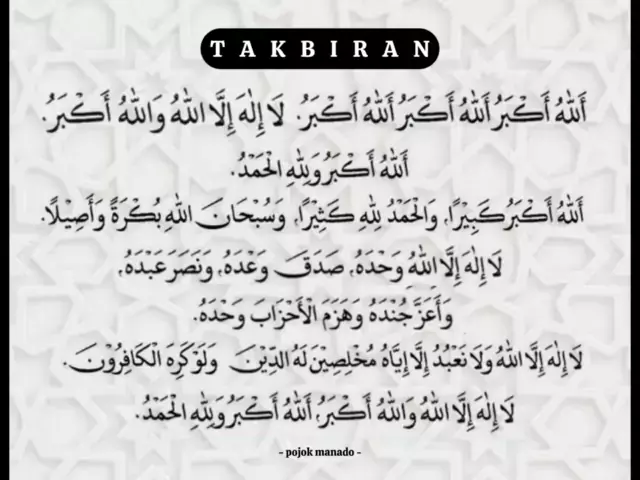 TAKBIRAN
اَللهُ أَكْبَرُ اَللهُ أَكْبَرُ اَللهُ أَكْبَرُ. لَا إِلٰهَ إِلَّا اللهُ وَاللهُ أَكْبَرُ.
اَللهُ أَكْبَرُ وَلِلهِ الْحَمْدُ.
اَللهُ أَكْبَرُ كَبِيْرًا, وَالْحَمْدُ لِلهِ كَثِيْرًا, وَسُبْحَانَ اللهِ بُكْرَةً وَأَصِيْلًا.
لَا إِلٰهَ إِلَّا اللهُ وَحْدَهُ, صَدَقَ وَعْدَهُ, وَنَصَرَ عَبْدَهُ,
وَأَعَزَّ جُنْدَهُ وَهَزَمَ الْأَحْزَابَ وَحْدَهُ.
لَا إِلٰهَ إِلَّا اللهُ وَلَا نَعْبُدُ إِلَّا إِيَّاهُ مُخْلِصِيْنَ لَهُ الدِّيْنَ وَلَوْ كَرِهَ الْكَافِرُوْنَ.
لَا إِلٰهَ إِلَّا اللهُ وَاللهُ أَكْبَرُ, اَللهُ أَكْبَرُ وَلِلهِ الْحَمْدُ.
- pojok manado -